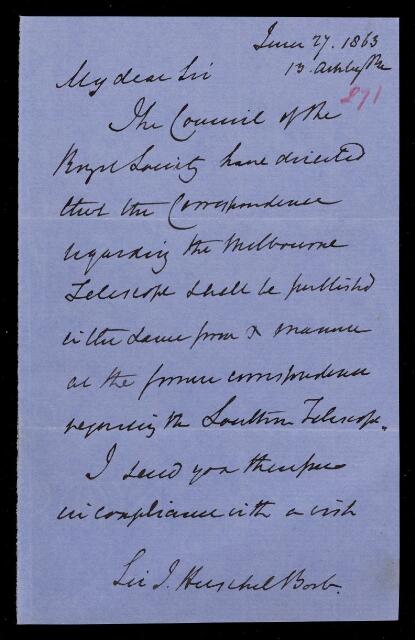 June 27. 1863
13. Ashley Pl.
271
My dear Sir
The Council of the
Royal Society have directed
that the Correspondence
regarding the Melbourne
Telescope shall be published
in the same form & manner
as the former correspondence
regarding the Southern Telescope.
I send you therefore
in compliance with a wish
Sir J. Herschel Bart.